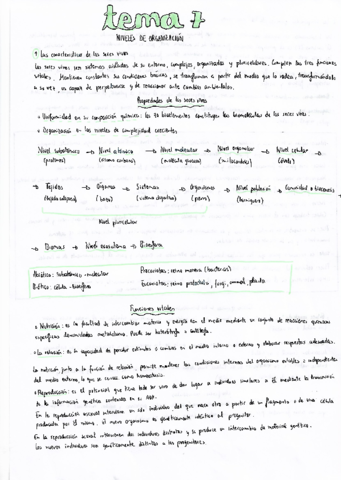 tema 7
NIVELES DE ORGANIZACIÓN
Las características de los seres vivos
Los seres vivos son sistemas aislados de su entorno, complejos, organizados y pluricelulares. Cumplen las tres funciones
vitales. Mantienen constantes sus condiciones básicas, se transforman a partir del medio que lo rodea, transformándolo
a su vez, es capaz de perpetuarse y de reaccionar ante cambios ambientales.
Propiedades de los seres vivos
Uniformidad en su composición química: los 70 bioelementos constituyen las biomoléculas de los seres vivos.
Organización en los niveles de complejidad creciente.
Nivel subatómico → Nivel atómico → Nivel molecular → Nivel organular → Nivel celular →
(protones) (átomo carbono) (molécula glucosa) (mitocondrias)
→ Tejidos → Órganos → Sistemas → Organismos → Nivel población → Comunidad o biocenosis
(tejido adiposo) (sistema digestivo) (perro) (hormigas)
Nivel pluricelular
→ Nivel ecosistema → Biosfera
Abiótico: subatómico - molecular Procariotas: reino monera (bacterias)
Biótico: célula - biosfera Eucariotas: reino protoctista, fungi, animal, planta
Funciones vitales
Nutrición: es la facultad de intercambiar materia y energía en el medio mediante un conjunto de reacciones químicas
específicas denominadas metabolismo. Puede ser heterótrofa o autótrofa.
La relación: es la capacidad de percibir estímulos o cambios en el medio interno o externo y elaborar respuestas adecuadas.
La nutrición junto a la función de relación, permite mantener las condiciones internas del organismo estables e independientes
del medio externo, lo que se conoce como homeostasis.
Reproducción: es el potencial que tiene todo ser vivo de dar lugar a individuos similares a él mediante la transmisión
de la información genética contenida en su ADN.
En la reproducción asexual interviene un solo individuo del que nace otro a partir de un fragmento o de una célula
producida por él mismo, el nuevo organismo es genéticamente idéntico al progenitor.
En la reproducción sexual intervienen dos individuos distintos y se produce un intercambio de material genético.
Los nuevos individuos son genéticamente distintos a los progenitores.